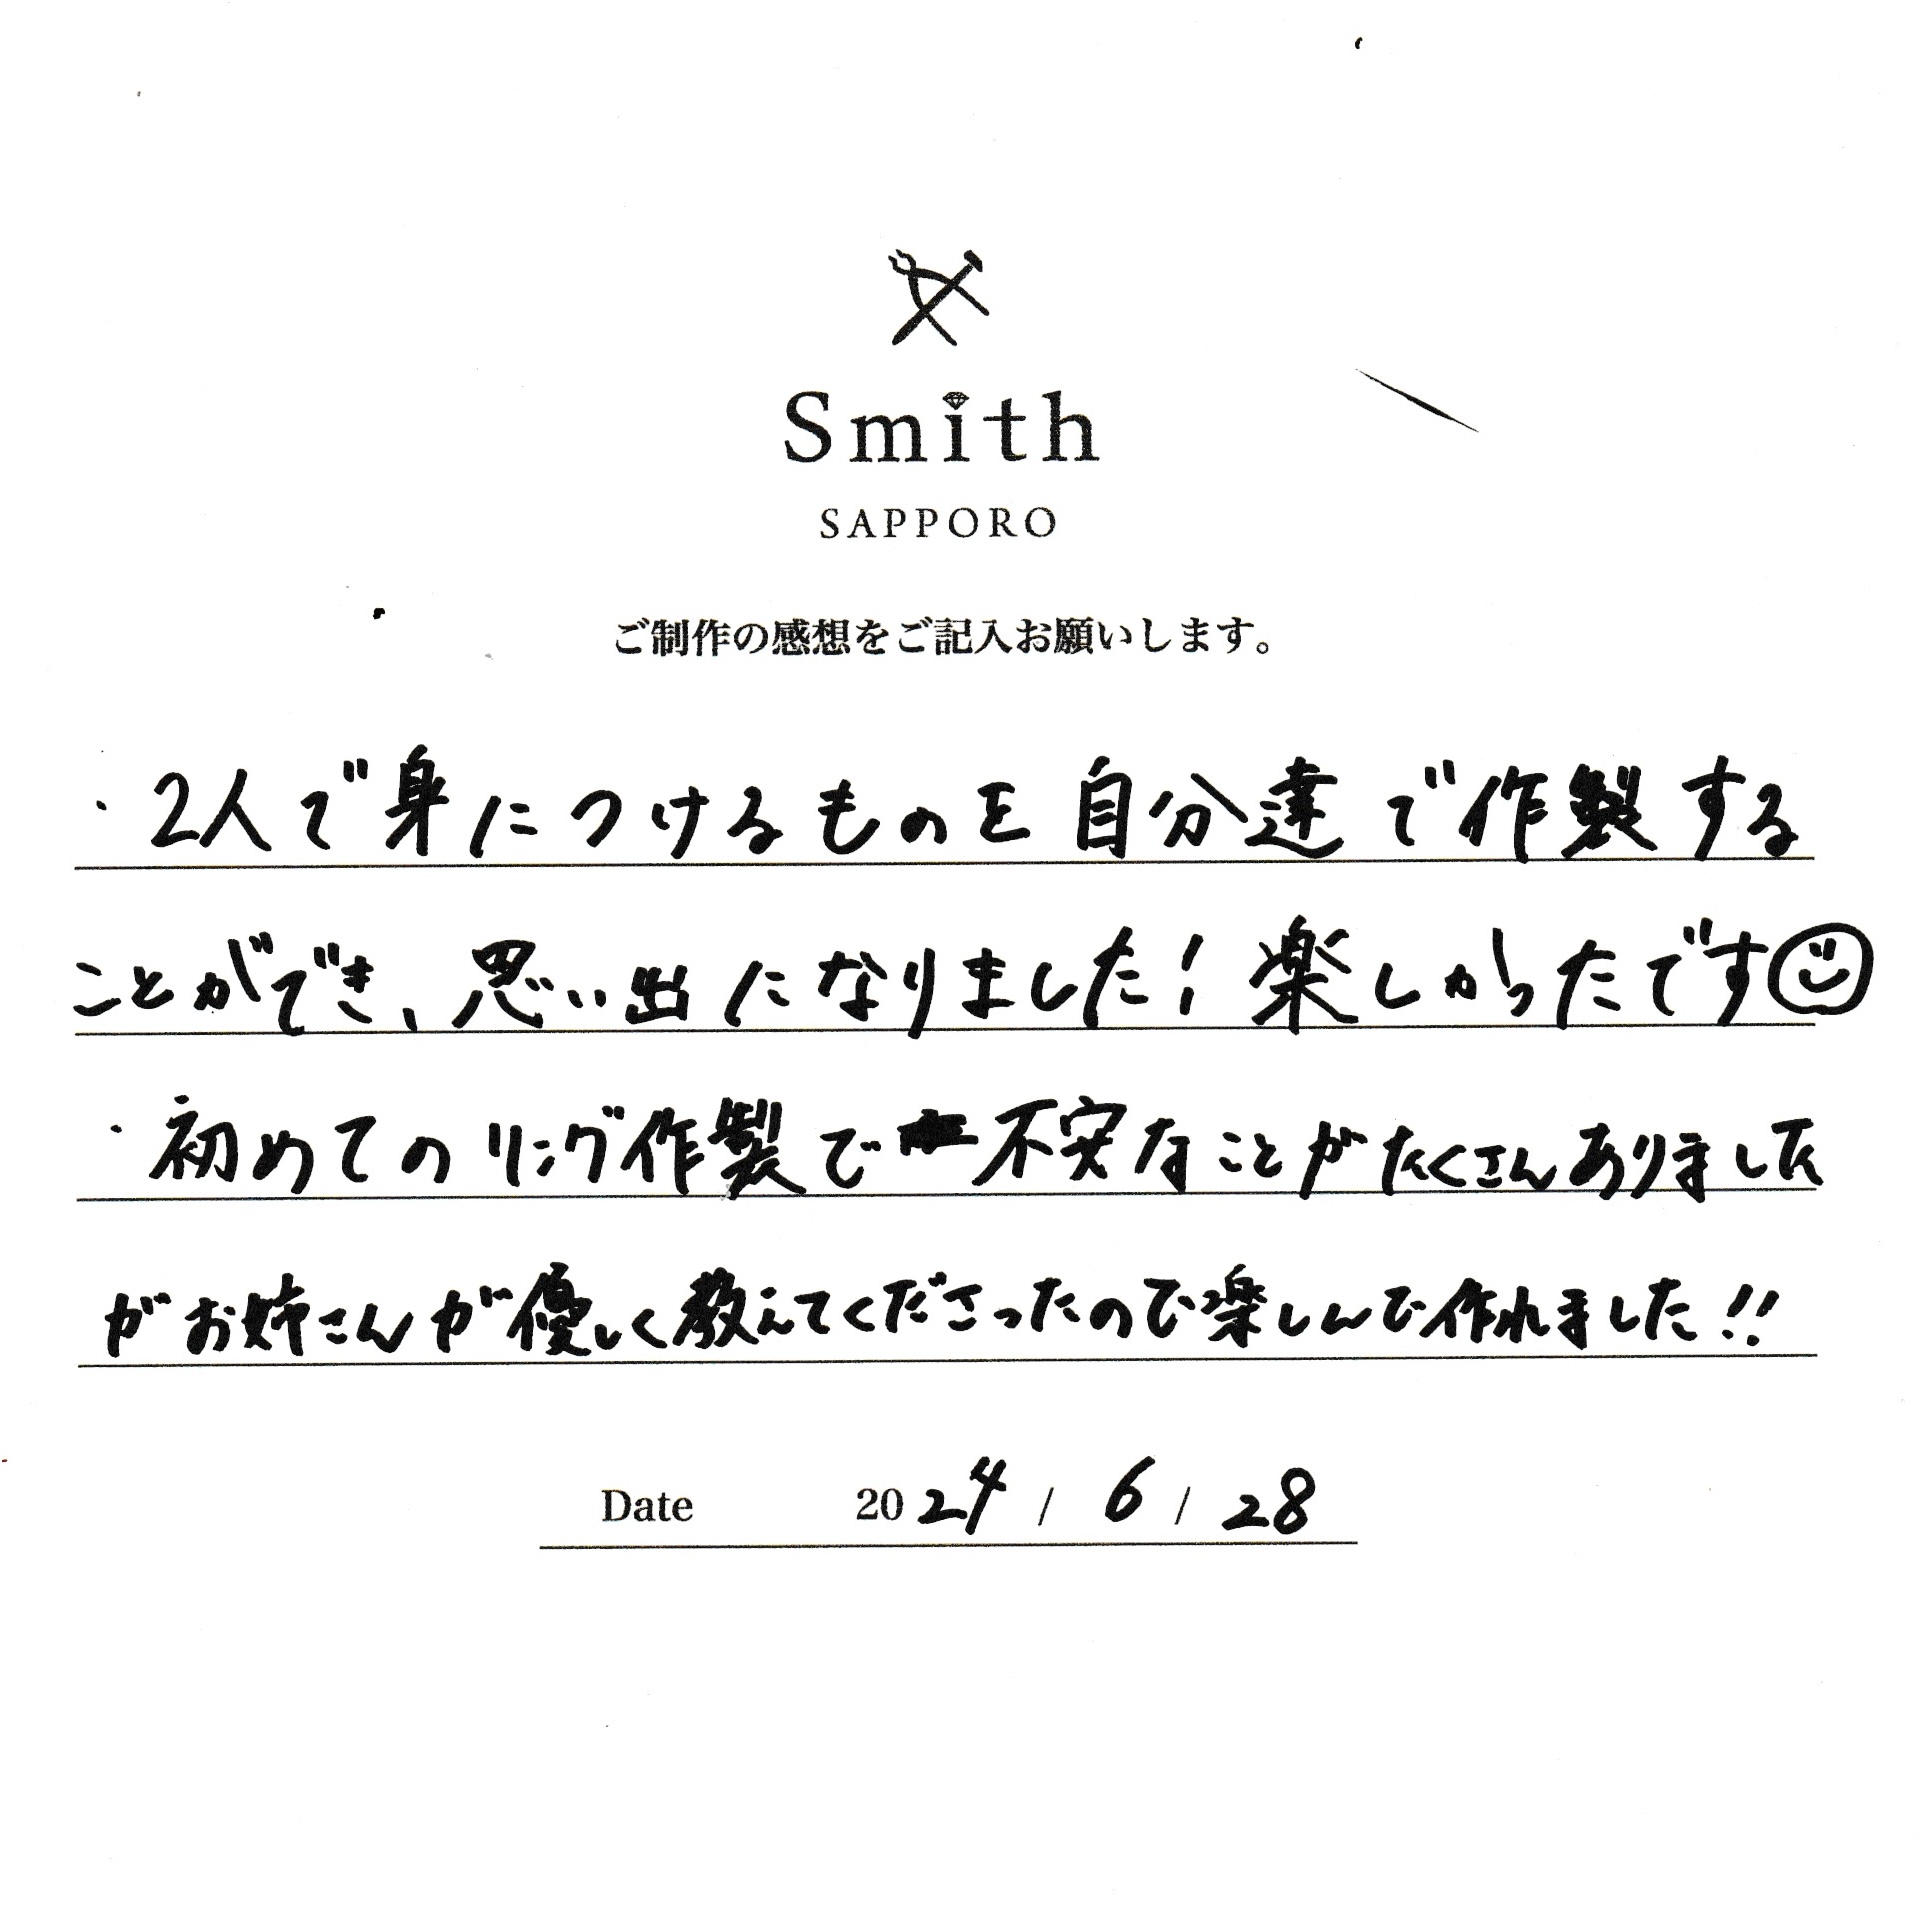 Smith
SAPPORO
ご制作の感想をご記入お願いします。
・2人で身につけるものを自分達で作製する
ことができ、思い出になりました!楽しかったです
・初めてのリング作製で不安なことがたくさんありました
がお姉さんが優しく教えてくださったので楽しんで作れました!!
Date 2024 / 6 / 28